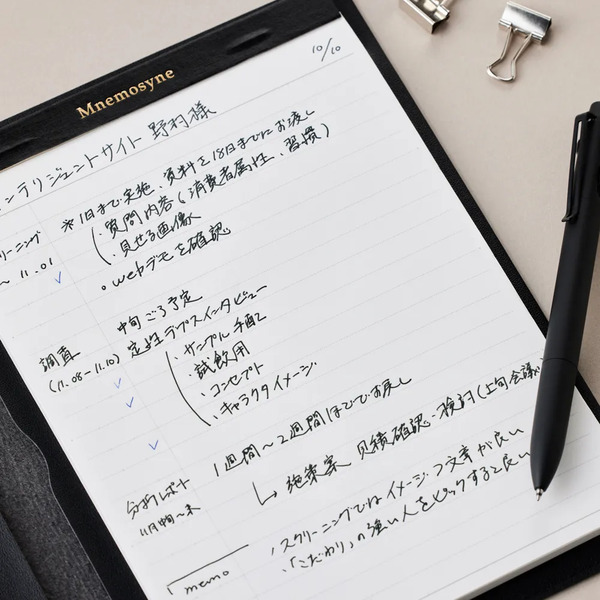 Mnemosyne
10/10
ンテリジェントサイト 野村様
リーニング
〜 11.01
※1日まで実施、資料を18日までにお渡し
・質問内容(消費者属性、習慣)
・見せる画像
。webデモを確認
調査
(11.08-11.10)
中旬ごろ予定
定性ラプスインタビュー
・サンプル手配
・試飲用
・コンセプト
・キャラクタイメージ
分析レポート
11月中旬〜末
1週間〜2週間ほどでお戻し
↳ 施策案 見積確認・検討(上旬会議
memo
スクリーニングではイメージつく文章が良い
・「こだわり」の強い人をピックすると良い